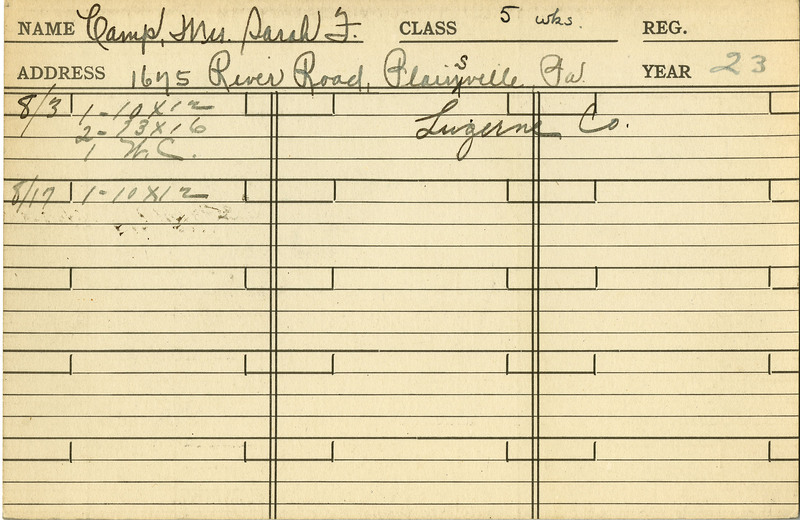 NAME Camp, Mrs. Sarah F. CLASS 5 wks. REG.
ADDRESS 1675 River Road, Plainsville, Pa. YEAR 23
8/3 1-10X12 Luzerne Co.
2-13X16
1 W.C.
8/17 1-10X12